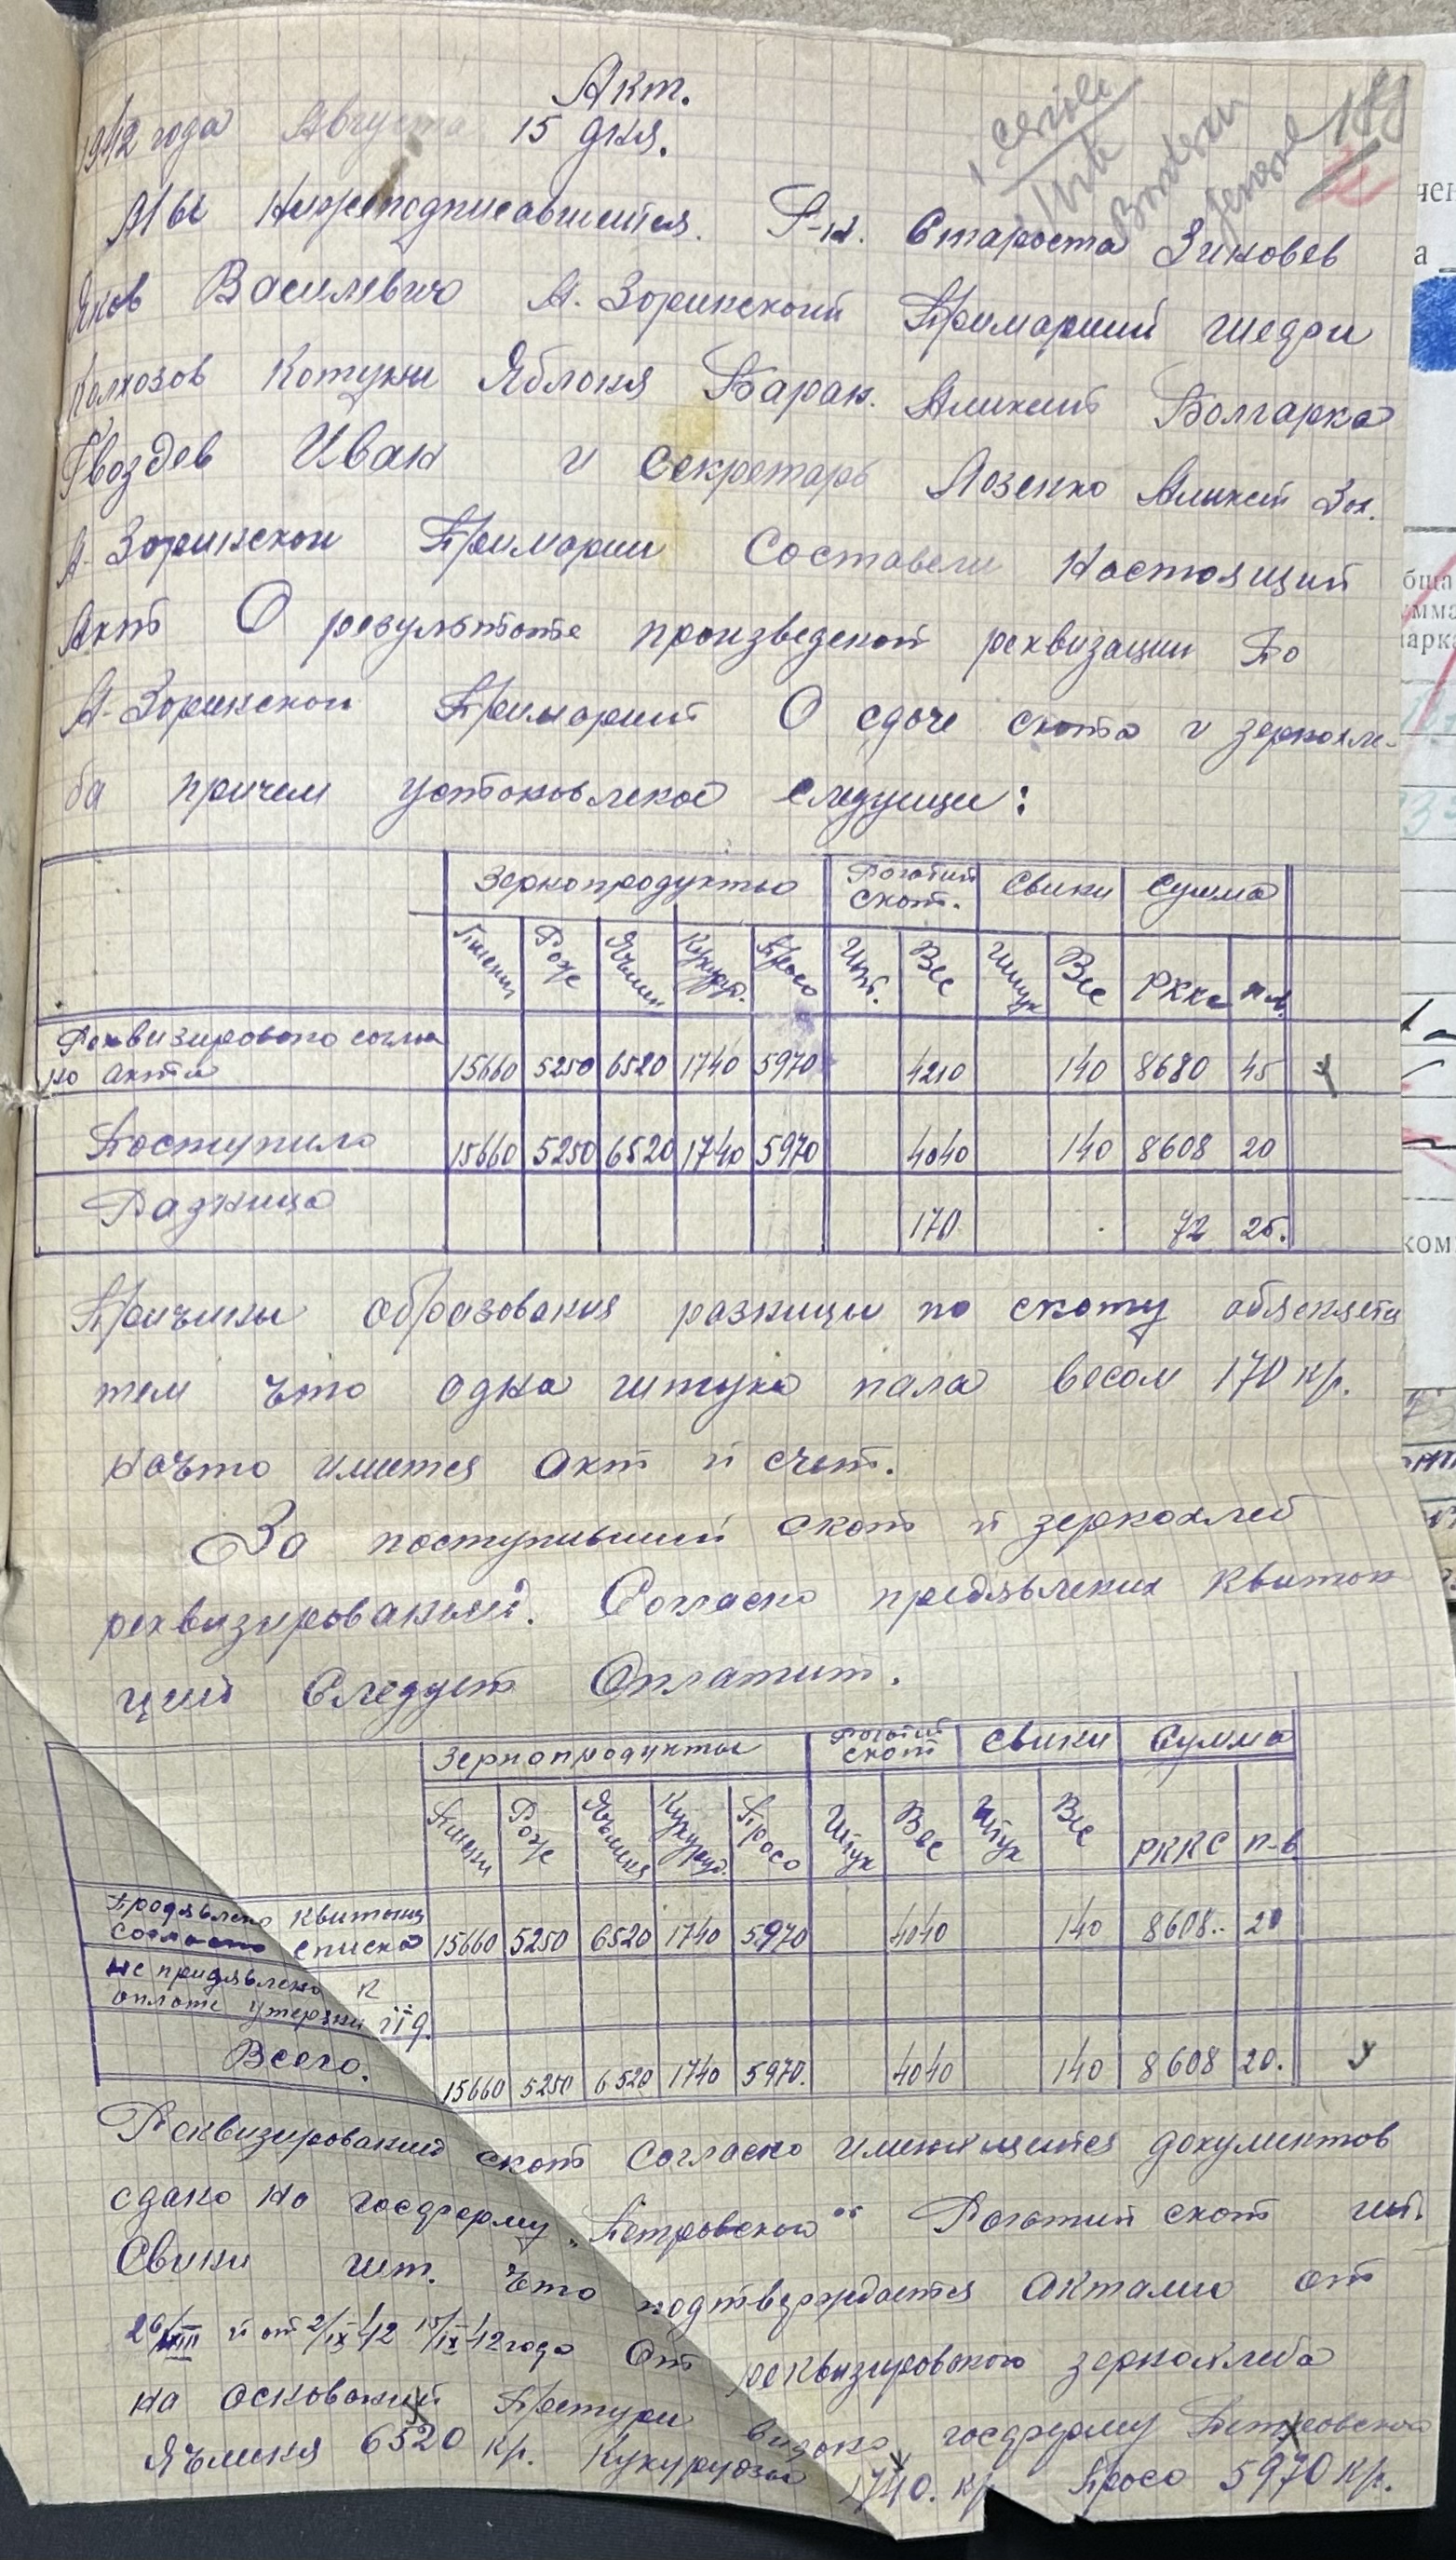 Акт.
1942 года Августа 15 дня.
Мы Нижеподписавшиеся. Староста Зиновев
Яков Василевич Н. Зоринской Примарии
Колхозов Котуни Яблоня Баран. Болгарка
Гвоздев Иван и Секретарь Лозенко
Н-Зоринской Примарии Составели Настоящий
Акт О результате произведеной реквизации По
Н-Зоринской Примарии О сдаче скота и зернохле-
ба причем установленое следующи:
Зернопродукты Рогатий скот. Свини Сумма
Пшениц Рож Ячмен Кукуруз. Просо Шт. Вес Штук Вес РККС п-в.
Реквизировано согла
но акта 15660 5250 6520 1740 5970 4210 140 8680 45
Поступило 15660 5250 6520 1740 5970 4040 140 8608 20
Разница 170 72 25.
Причины образования разницы по скоту обясняетя
тем что одна штука пала весом 170 кр.
начто имеется акт и счет.
За поступивший скот и зернохлеб
реквизированый. Согласно предявлених Квитон
ций Следует Оплатит.
Зернопродукты Рогатий скот Свини Сумма
Пшениц Рож Ячменя Кукуруз. Просо Штук Вес Штук Вес РККС п-в
Продявлено Квитанц
Согласно списка 15660 5250 6520 1740 5970 4040 140 8608.. 20
не придявлено К
оплате утерян и т д.
Всего. 15660 5250 6520 1740 5970. 4040 140 8608 20.
Реквизированый скот Согласно имеющиеся документов
сдано на госферму „Петровской" Рогатий скот шт.
Свини шт. что подтверждается актамы от
26/VIII и от 2/IX 42 15/IX 42 года От реквизированого зернохлеба
на оснований Претури госферму Петровской
Ячменя 6520 кр. Кукурудзы 1740. кр Просо 5970 кр.